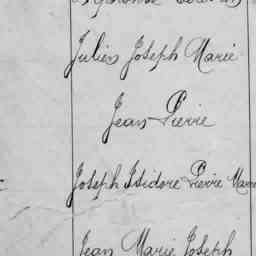 Jules Joseph Marie
Jean Pierre
Joseph Isidore Pierre Marie
Jean Marie Joseph